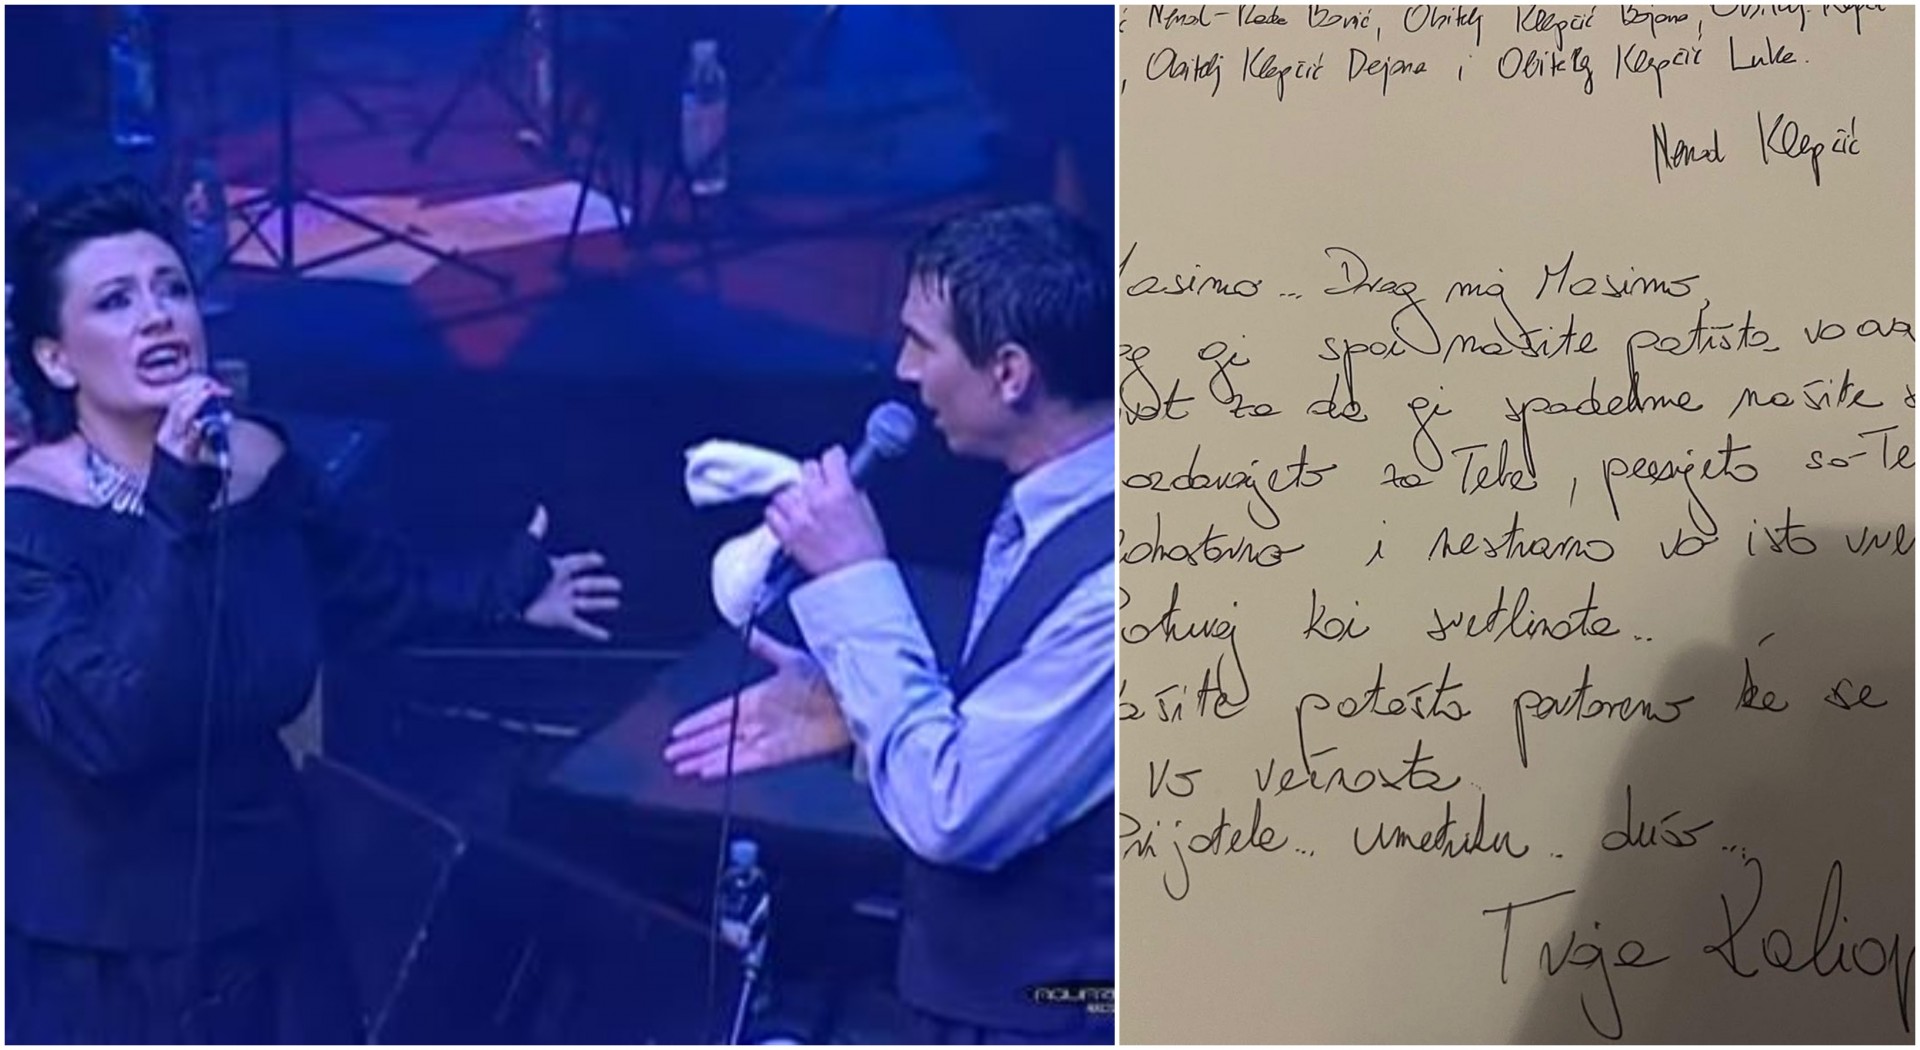 Nenad-Rade Bavić, Obitelj Klepčić Bojana, Obitelj
, Obitelj Klepčić Dejana i Obitelj Klepčić Luke.
Nenad Klepčić
asimo... Drag moj Masimo,
gi spoi našite patišta vo ova
vot za da gi spodelime našite s
ozdavajeto za Tebe, peenjeto so-Te
ednostavno i nestvarno vo isto vre
Patuvaj koi svetlinata..
ašite patišta povtoreno ḱe se
vo večnosta.
Prijatele... umetniku.. dušo...
Tvoja Kaliop